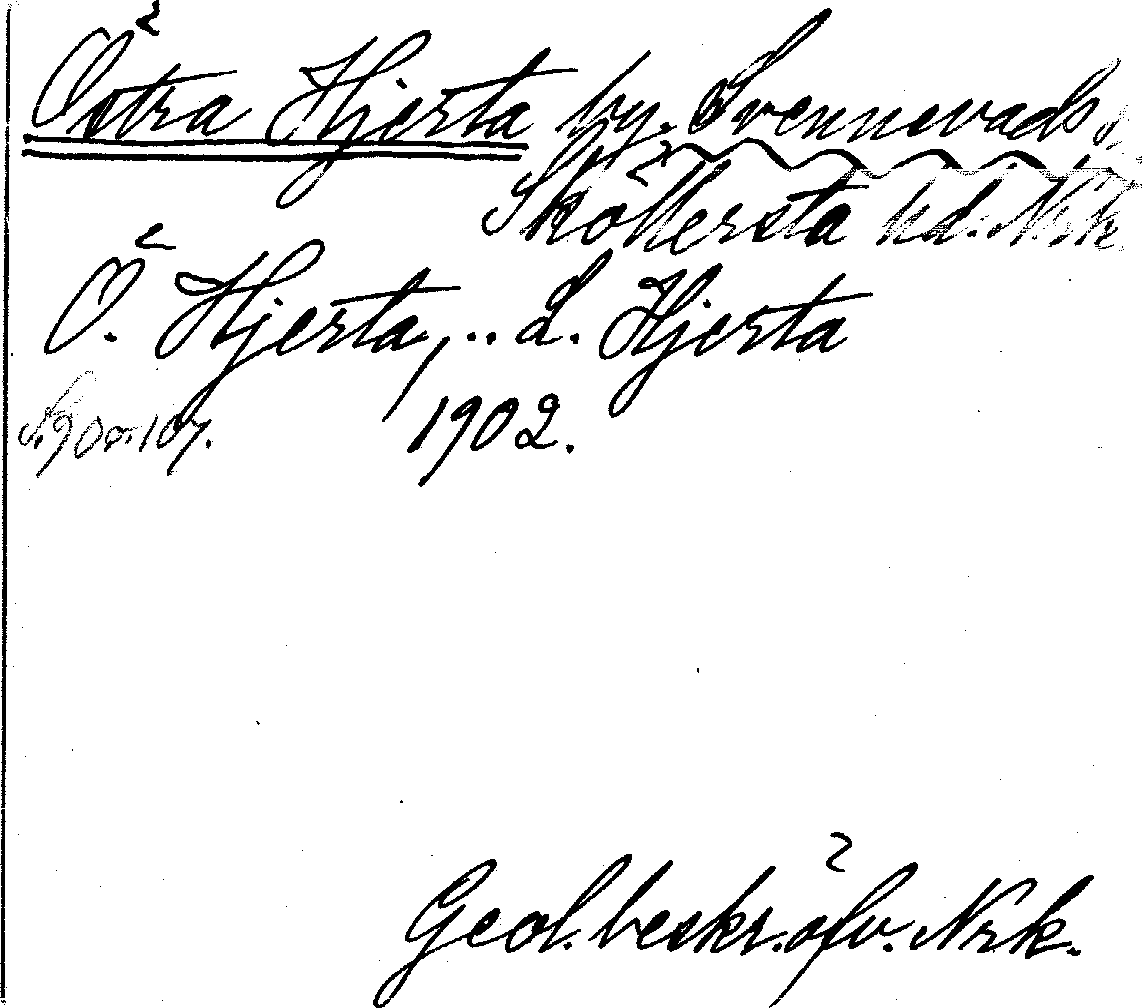 Östra Hjerta by. Svennevads s
Sköllersta hd. Nrk
Ö. Hjerta, .. L. Hjerta
S. 90 o. 107. 1902.
Geol. beskr. öfv. Nrk.